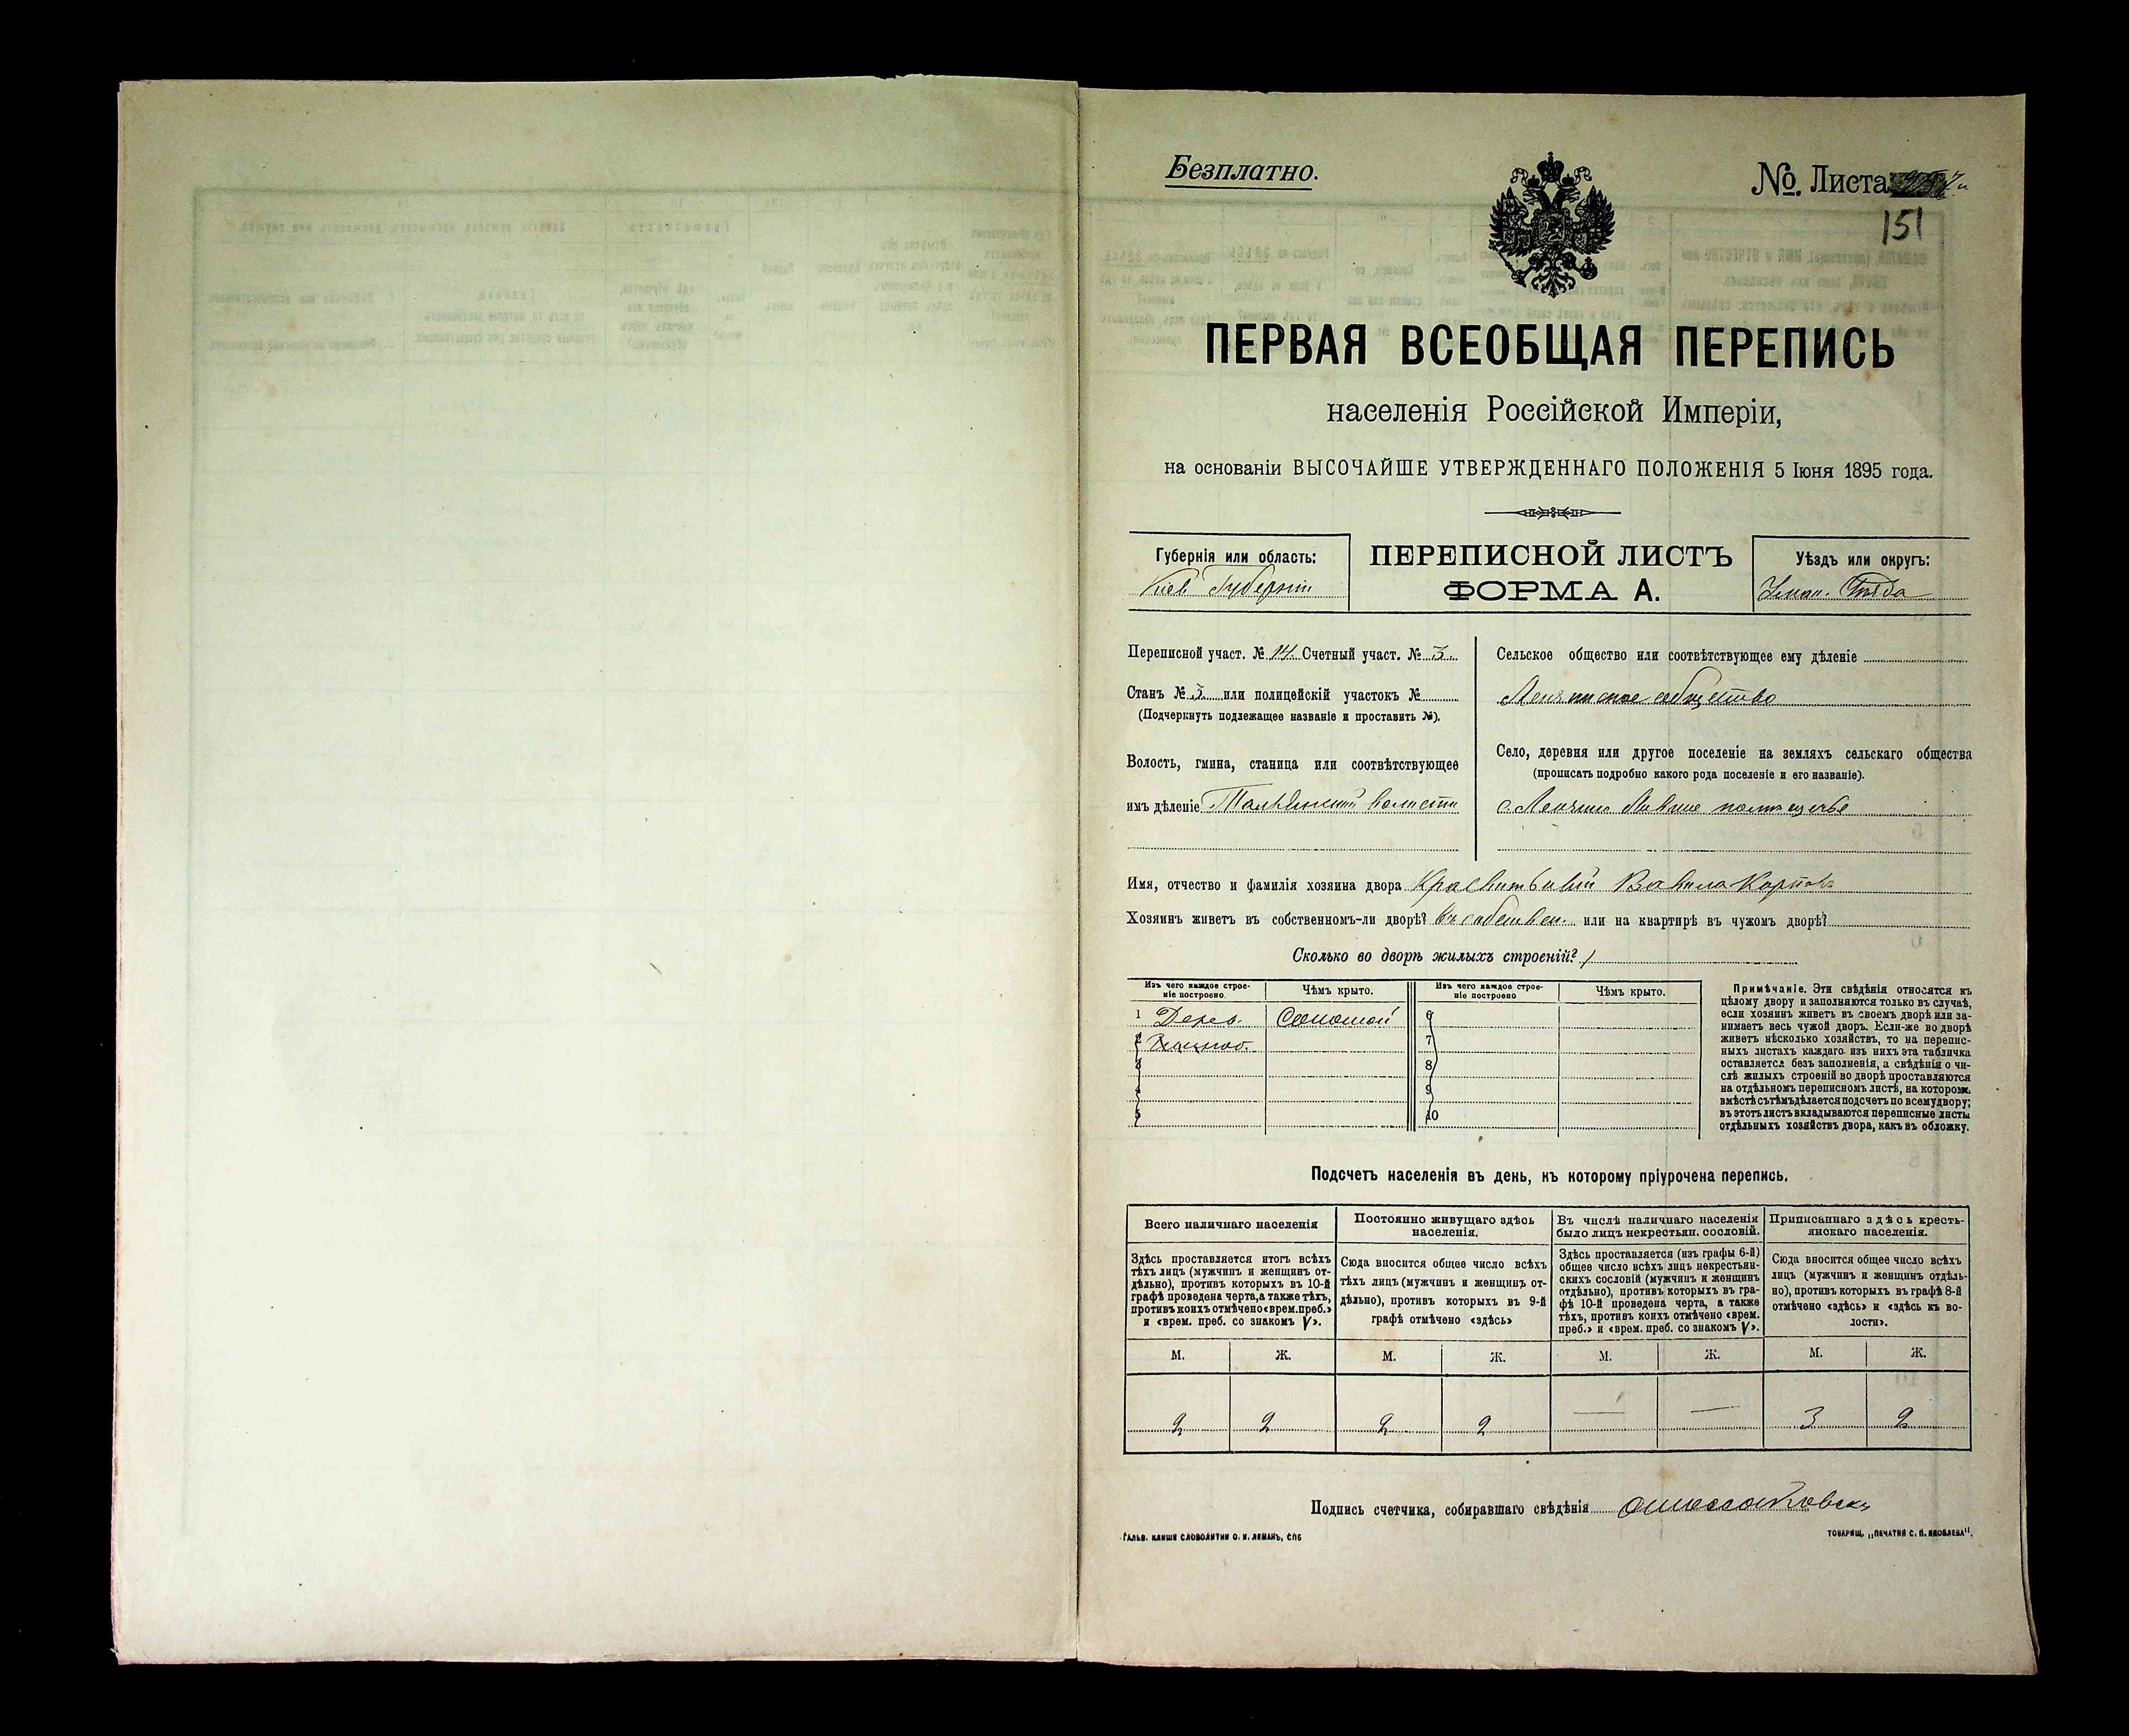 Безплатно.
№. Листа
151
ПЕРВАЯ ВСЕОБЩАЯ ПЕРЕПИСЬ
населенія Россійской Имперіи,
на основаніи ВЫСОЧАЙШЕ УТВЕРЖДЕННАГО ПОЛОЖЕНІЯ 5 Іюня 1895 года.
Губернія или область:
Кіев. Губерніи
ПЕРЕПИСНОЙ ЛИСТЪ
ФОРМА А.
Уѣздъ или округъ:
Уман. Уѣзда
Переписной участ. № 14. Счетный участ. № 3.
Станъ № 3. или полицейскій участокъ №
(Подчеркнуть подлежащее названіе и проставить №).
Волость, гмина, станица или соотвѣтствующее
имъ дѣленіе Тальянской волости
Сельское общество или соотвѣтствующее ему дѣленіе
общество
Село, деревня или другое поселеніе на земляхъ сельскаго общества
(прописать подробно какого рода поселеніе и его названіе).
с.
Имя, отчество и фамилія хозяина двора Вавила Карповъ
Хозяинъ живетъ въ собственномъ-ли дворѣ? Въ собствен. или на квартирѣ въ чужомъ дворѣ?
Сколько во дворѣ жилыхъ строеній? 1
Изъ чего каждое строе-
ніе построено.
Чѣмъ крыто.
Изъ чего каждое строе-
ніе построено
Чѣмъ крыто.
1 Дерев. Соломой 6
2 7
3 8
4 9
5 10
Примѣчаніе. Эти свѣдѣнія относятся къ
цѣлому двору и заполняются только въ случаѣ,
если хозяинъ живетъ въ своемъ дворѣ или за-
нимаетъ весь чужой дворъ. Если-же во дворѣ
живетъ нѣсколько хозяйствъ, то на перепис-
ныхъ листахъ каждаго изъ нихъ эта табличка
оставляется безъ заполненія, а свѣдѣнія о чи-
слѣ жилыхъ строеній во дворѣ проставляются
на отдѣльномъ переписномъ листѣ, на которомъ
вмѣстѣ съ тѣмъ дѣлается подсчетъ по всему двору;
въ этотъ листъ вкладываются переписные листы
отдѣльныхъ хозяйствъ двора, какъ въ обложку.
Подсчетъ населенія въ день, къ которому пріурочена перепись.
Всего наличнаго населенія
Здѣсь проставляется итогъ всѣхъ
тѣхъ лицъ (мужчинъ и женщинъ от-
дѣльно), противъ которыхъ въ 10-й
графѣ проведена черта, а также тѣхъ,
противъ коихъ отмѣчено «врем. преб.»
и «врем. преб. со знакомъ V».
Постоянно живущаго здѣсь
населенія.
Сюда вносится общее число всѣхъ
тѣхъ лицъ (мужчинъ и женщинъ от-
дѣльно), противъ которыхъ въ 9-й
графѣ отмѣчено «здѣсь»
Въ числѣ наличнаго населенія
было лицъ некрестьян. сословій.
Здѣсь проставляется (изъ графы 6-й)
общее число всѣхъ лицъ некрестьян-
скихъ сословій (мужчинъ и женщинъ
отдѣльно), противъ которыхъ въ гра-
фѣ 10-й проведена черта, а также
тѣхъ, противъ коихъ отмѣчено «врем.
преб.» и «врем. преб. со знакомъ V».
Приписаннаго здѣсь кресть-
янскаго населенія.
Сюда вносится общее число всѣхъ
лицъ (мужчинъ и женщинъ отдѣль-
но), противъ которыхъ въ графѣ 8-й
отмѣчено «здѣсь» и «здѣсь къ во-
лости».
М. Ж. М. Ж. М. Ж. М. Ж.
2 2 2 2 — — 3 2
Подпись счетчика, собиравшаго свѣдѣнія
ГАЛЬВ. КЛИШЕ СЛОВОЛИТНИ О. И. ЛЕМАНЪ, СПБ
ТОВАРИЩ. „ПЕЧАТНЯ С. П. ЯКОВЛЕВА".